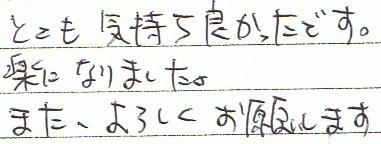 とても気持ち良かったです。
楽になりました。
また、よろしくお願いします